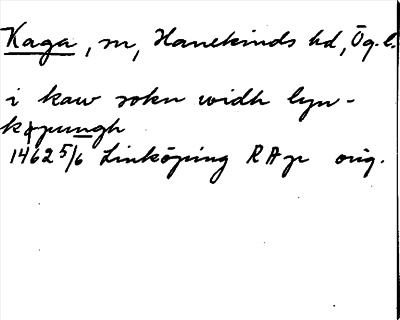 Kaga, sn, Hanekinds hd, Ög. l.
i kaw sokn widh lyn-
køpungh
1462 5/6 Linköping RAp orig.